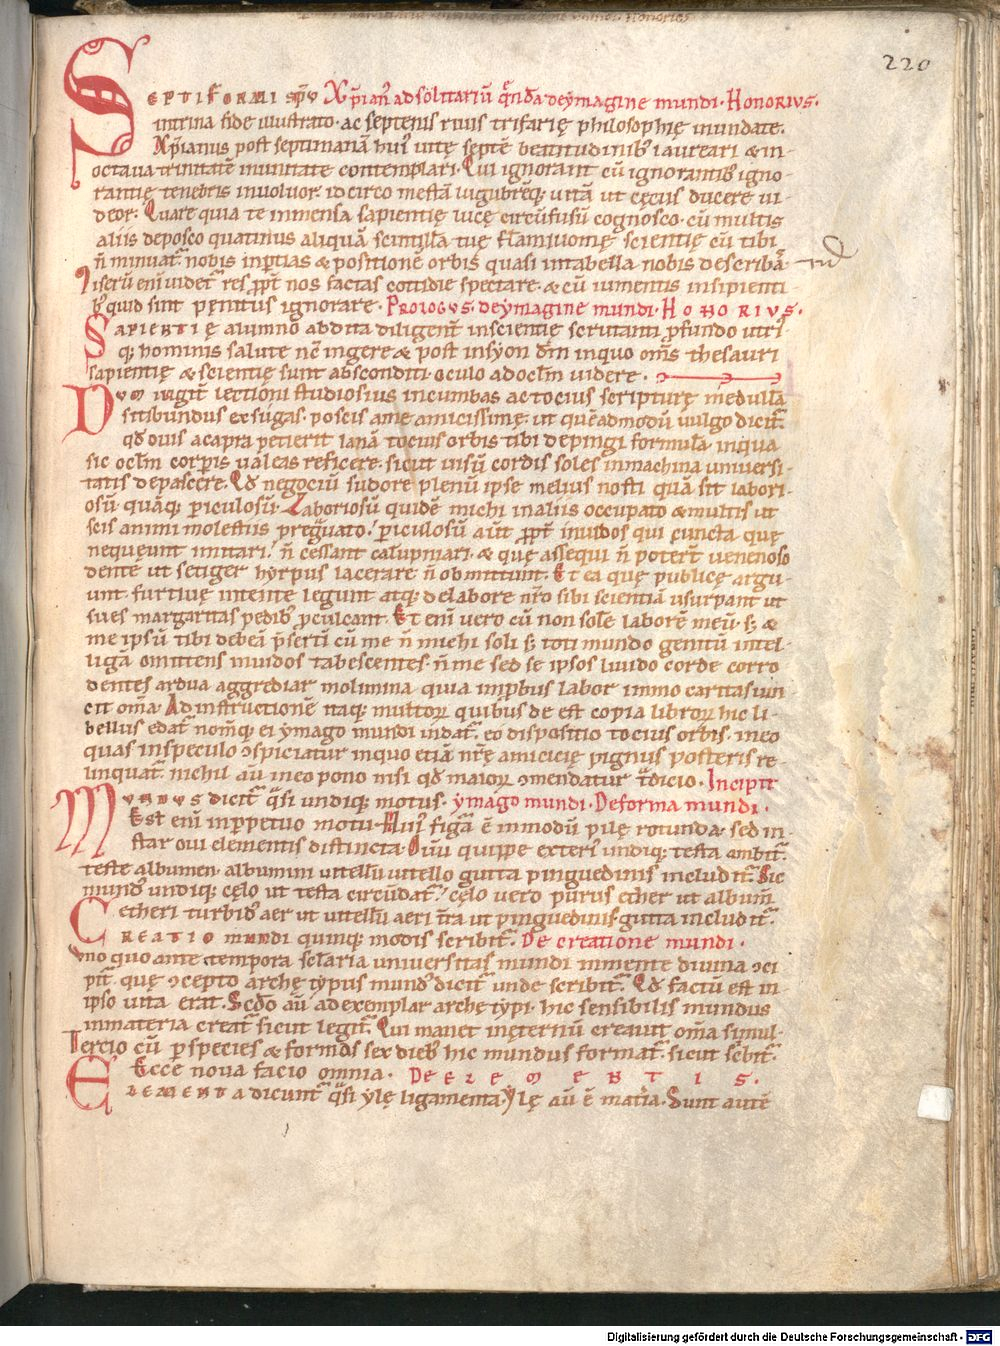 220
SEPTIFORMI sp̄u Xp̄ian᷒ ad solitariū q̄nda de ymagine mundi · Honorius ·
in trina fide illustrato · ac septenis riuis trifarię philosophię inundate ·
Xp̄ianus post septimanā hui᷒ uitę septē beatitudinib᷒ laureari & in
octaua trinitatē in unitate contemplari · Qui ignorant cū ignorantib᷒ igno-
rantię tenebris inuoluor · idcirco mestā lugubrēq; uitā ut cęcus ducere ui-
deor · Quare quia te inmensa sapientię luce circūfusū cognosco · cū multis
aliis deposco quatinus aliquā scintillā tuę flāmiuomę scientię cū tibi
n̄ minuat᷑ nobis inp̄tias & positionē orbis quasi in tabella nobis describā ·
Miserū eni uidet᷑ res ꝓpt᷑ nos factas cottidie spectare · & cū iumentis insipienti
b᷒ quid sint penitus ignorare · Prologus · de ymagine mundi · Honorius ·
SAPIENTIĘ alumno abdita diligent᷑ inscientię scrutanti ꝓfundo utri
q; hominis salute
sapientię & scientię sunt absconditi · oculo ad oclm̄ uidere ·
Dum iugit᷑ lectioni studiosius incumbas ac tocius scripturę medullā
sitibundus exsugas · poscis a me amicissimę · ut quēadmodū uulgo dicit᷑
qđ ouis a capra petierit lanā tocius orbis tibi depingi formulā · in qua
sic oclm̄ corp̄is ualeas reficere · sicut uisū cordis soles in machina uniuersi-
tatis depascere · Qđ negociū sudore plenū ipse melius nosti quā sit labori-
osū quāq; ꝑiculosū · Laboriosū quidē michi in aliis occupato & multis ut
scis animi molestiis pregrauato · ꝑiculosū aūt ꝓpt᷑ inuidos qui cuncta quę
nequeunt imitari · n̄ cessant calūpniari · & quę assequi n̄ poter̄t uenenoso
dente ut setiger hyrpus lacerare n̄ obmittunt · Et ea quę publicę argu-
unt furtiuę intente legunt atq; de labore nr̄o sibi scientiā usurpant ut
sues margaritas pedib᷒ ꝓculcant · Et eni uero cū non solē laborē meū · s; &
me ipsū tibi debeā p̄serti cū me n̄ michi soli s; toti mundo genitū intel-
ligā omittens inuidos tabescentes · n̄ me sed se ipsos liuido corde corro
dentes ardua aggrediar molimina quia inp̄bus labor immo caritas uin
cit om̄a · Ad instructionē itaq; multoꝝ quibus deest copia libroꝝ hic li-
bellus edat᷑ nom̄q; ei ymago mundi indat᷑ · eo dispositio tocius orbis · in eo
quas in speculo ↄspiciatur in quo etiā nr̄ę amicicię pignus posteris re-
linquat᷑ · nichil aū in eo pono nisi qđ maioꝝ ↄmendatur t᷑dicio · Incipit
Mundus dicit᷑ q̄si undiq; motus · ymago mundi · De forma mundi ·
Est eni in ꝑpetuo motu · Hui᷒ figr̄a ē in modū pilę rotunda · sed in-
star oui elementis distincta · Ouū quippe exteri᷒ undiq; testa ambit᷑ ·
teste albumen · albumini uitellū uitello gutta pinguedinis includit᷑ · Sic
mund᷒ undiq; cęlo ut testa circūdat᷑ · cęlo uero purus ether ut albumē
etheri turbid᷒ aer ut uitellū aeri t̄ra ut pinguedinis gutta includit᷑ ·
CREATIO mundi quinq; modis scribit᷑ · De creatione mundi ·
Vno quo ante tempora sclaria uniuersitas mundi in mente diuina ↄci
pit᷑ · quę ↄcepto archetypus mund᷒ dicit᷑ unde scribit᷑ · Qđ factū est in
ipso uita erat · Scđo aū ad exemplar archetypi · hic sensibilis mundus
in materia creat᷑ sicut legit᷑ · Qui manet in ęternū creauit om̄a simul ·
Tercio cū ꝑ species & formas sex dieb᷒ hic mundus format᷑ · sicut sc̄bit᷑ ·
Ecce noua facio omnia · DE ELEMENTIS ·
ELEMENTA dicunt᷑ q̄si ylę ligamenta · Ylę aū ē mat̄ia · Sunt autē
Digitalisierung gefördert durch die Deutsche Forschungsgemeinschaft - DFG